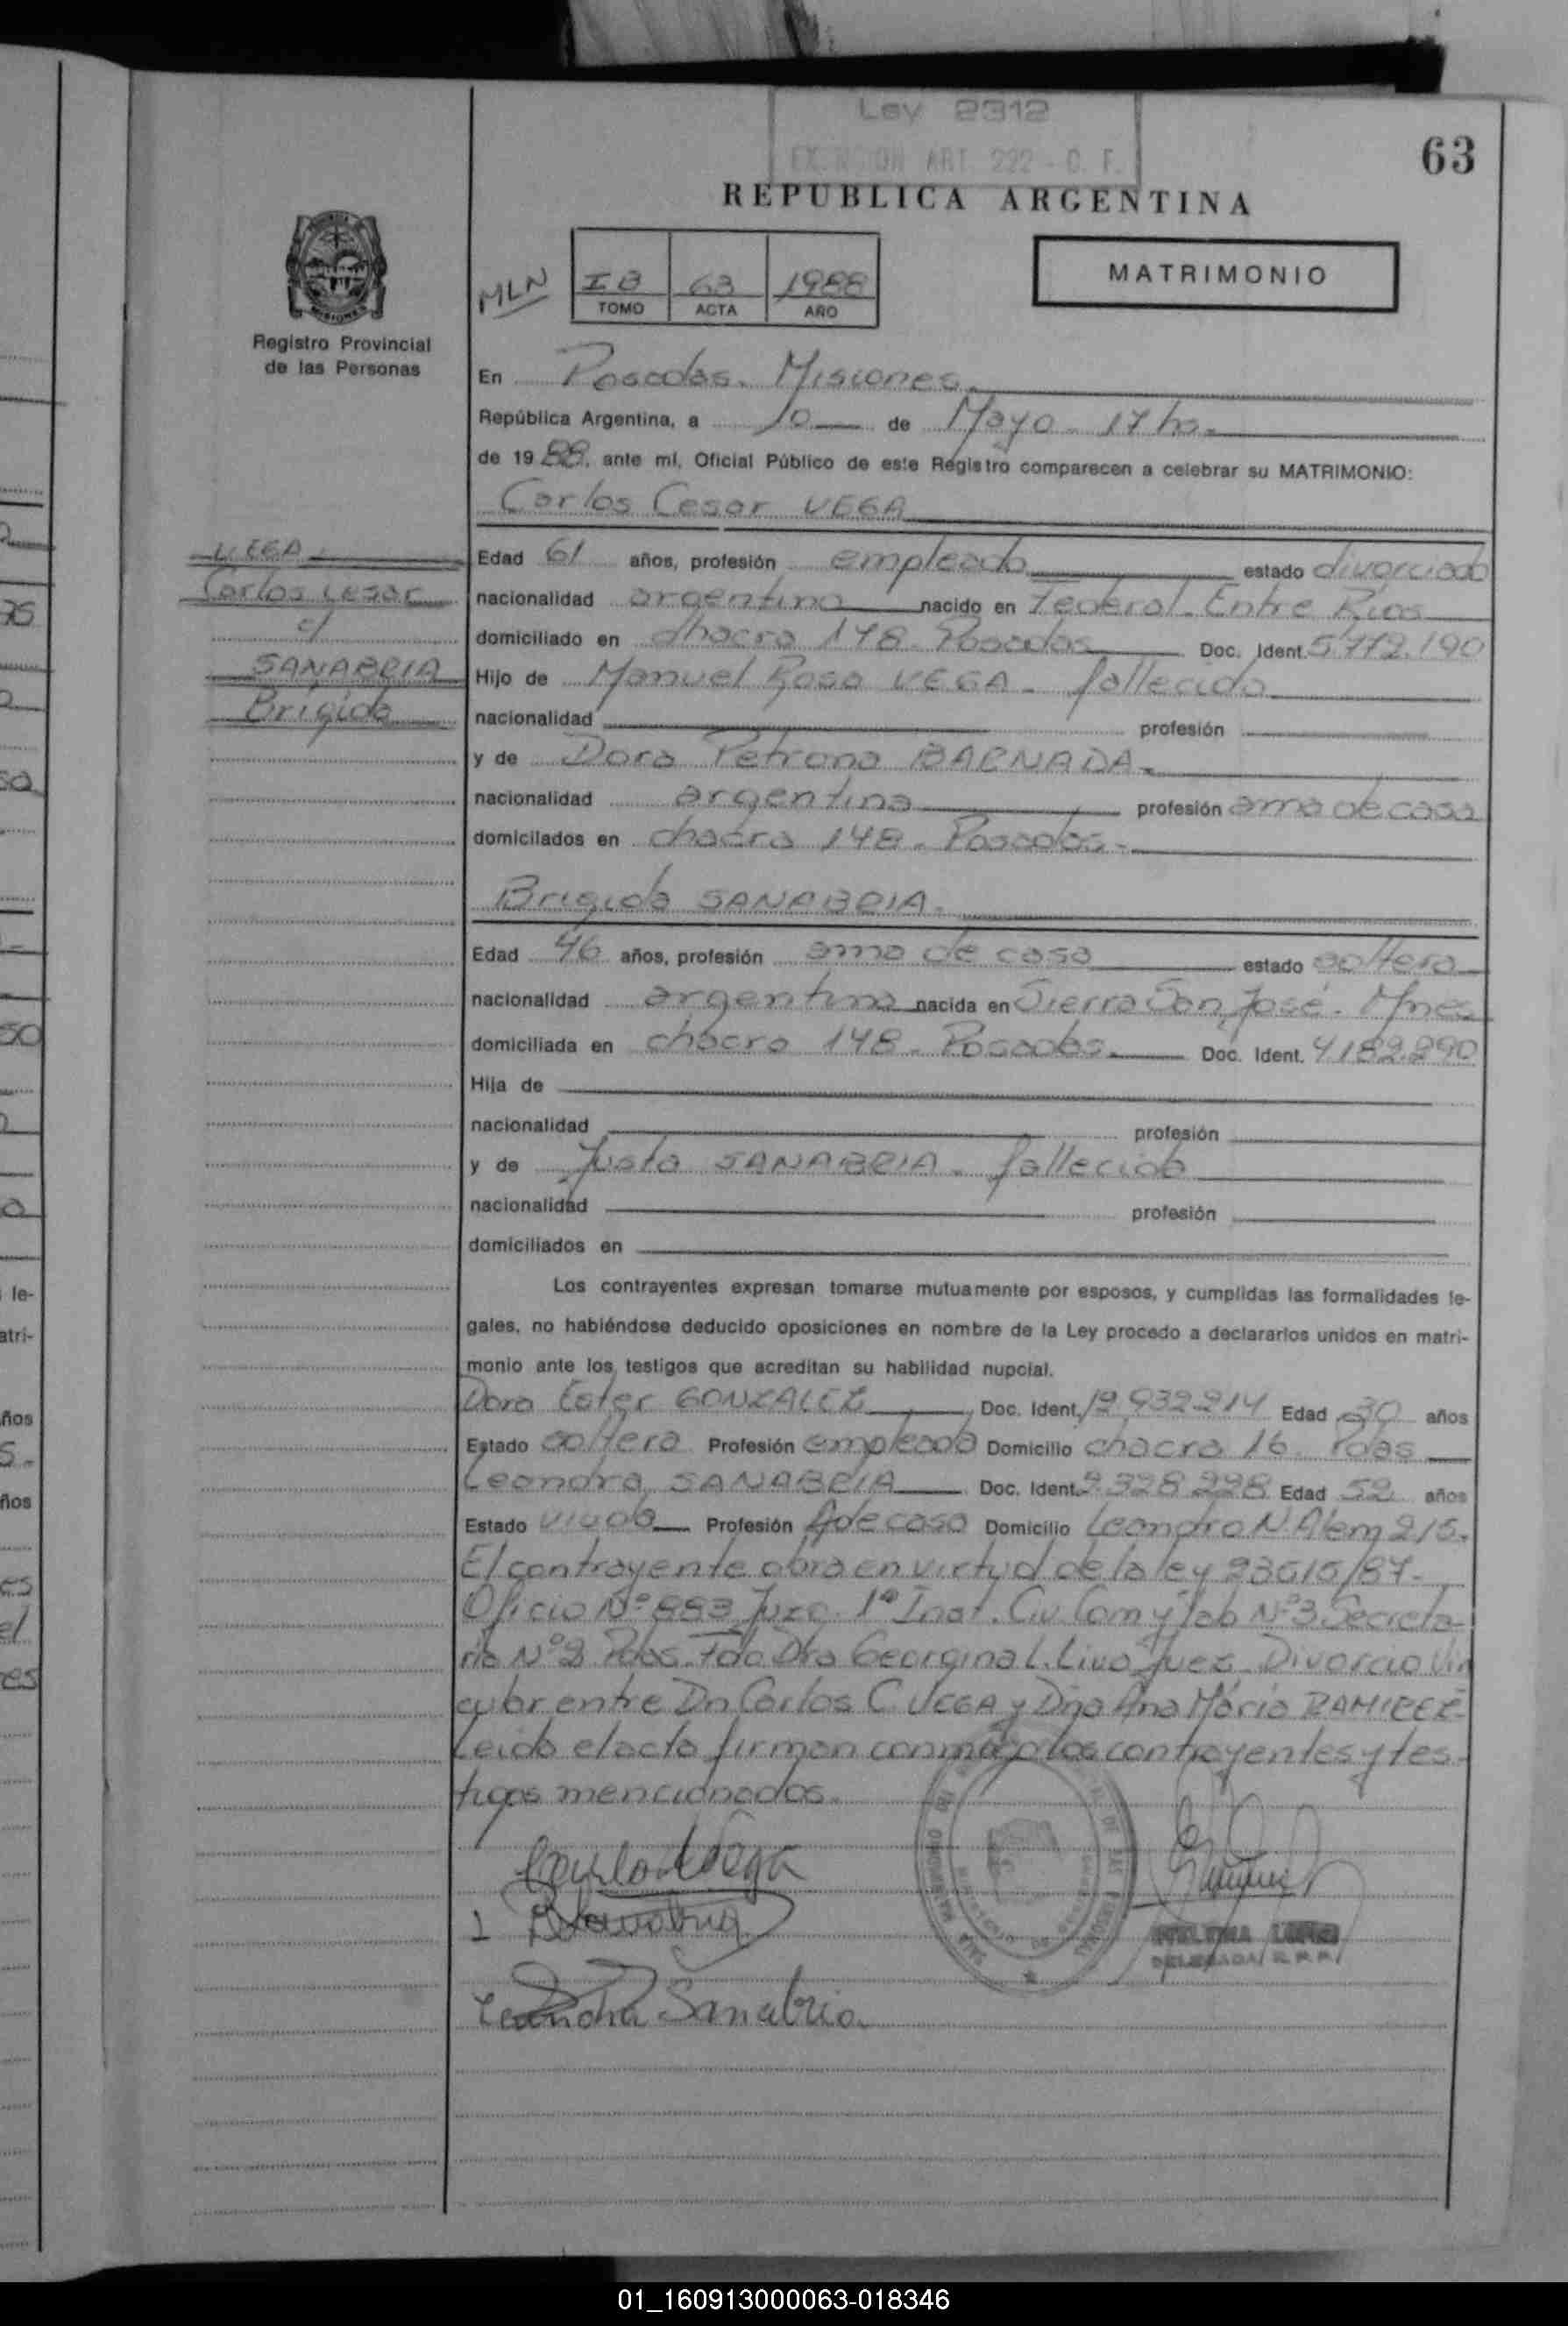 Ley 2312
EXENCION ART. 222 - C. F.
63
REPUBLICA ARGENTINA
MATRIMONIO
MLN
I B 63 1988
TOMO ACTA AÑO
MISIONES
Registro Provincial
de las Personas
En Posadas. Misiones.
República Argentina, a 10 de Mayo - 17 hs.
de 19 88, ante mí, Oficial Público de este Registro comparecen a celebrar su MATRIMONIO:
Carlos Cesar VEGA
VEGA
Carlos Cesar
c/
SANABRIA
Brigida
Edad 61 años, profesión empleado estado divorciado
nacionalidad argentina nacido en Federal - Entre Ríos
domiciliado en chacra 148 - Posadas Doc. Ident. 5.772.190
Hijo de Manuel Rosa VEGA - fallecido
nacionalidad profesión
y de Dora Petrona BARNADA -
nacionalidad argentina profesión ama de casa
domicilados en chacra 148 - Posadas -
Brigida SANABRIA.
Edad 46 años, profesión ama de casa estado soltera
nacionalidad argentina nacida en Sierra San José - Mnes
domiciliada en chacra 148 - Posadas. Doc. Ident. 4.182.290
Hija de
nacionalidad profesión
y de Justa SANABRIA - fallecida
nacionalidad profesión
domiciliados en
Los contrayentes expresan tomarse mutuamente por esposos, y cumplidas las formalidades le-
gales, no habiéndose deducido oposiciones en nombre de la Ley procedo a declararlos unidos en matri-
monio ante los testigos que acreditan su habilidad nupcial.
Dora Ester GONZALEZ Doc. Ident. 12.932.214 Edad 30 años
Estado soltera Profesión empleada Domicilio chacra 16 Pdas
Leandra SANABRIA Doc. Ident. 2.328.228 Edad 52 años
Estado viuda Profesión A de casa Domicilio Leandro N. Alem 215.
El contrayente obra en virtud de la ley 23515/87 -
Oficio Nº 893 Juzg. 1ª Inst. Civ. Com y lab Nº 3 Secreta-
ria Nº 2 Pdas. Fdo Dra Georgina L. Divorcio Vin
cular entre Dn Carlos C. VEGA y Dña Ana María RAMIREZ -
Leida el acta firman conmigo los contrayentes y tes-
tigos mencionados.
Carlos Vega
Leandra Sanabria
DELEGADA R. P. P.
01_160913000063-018346